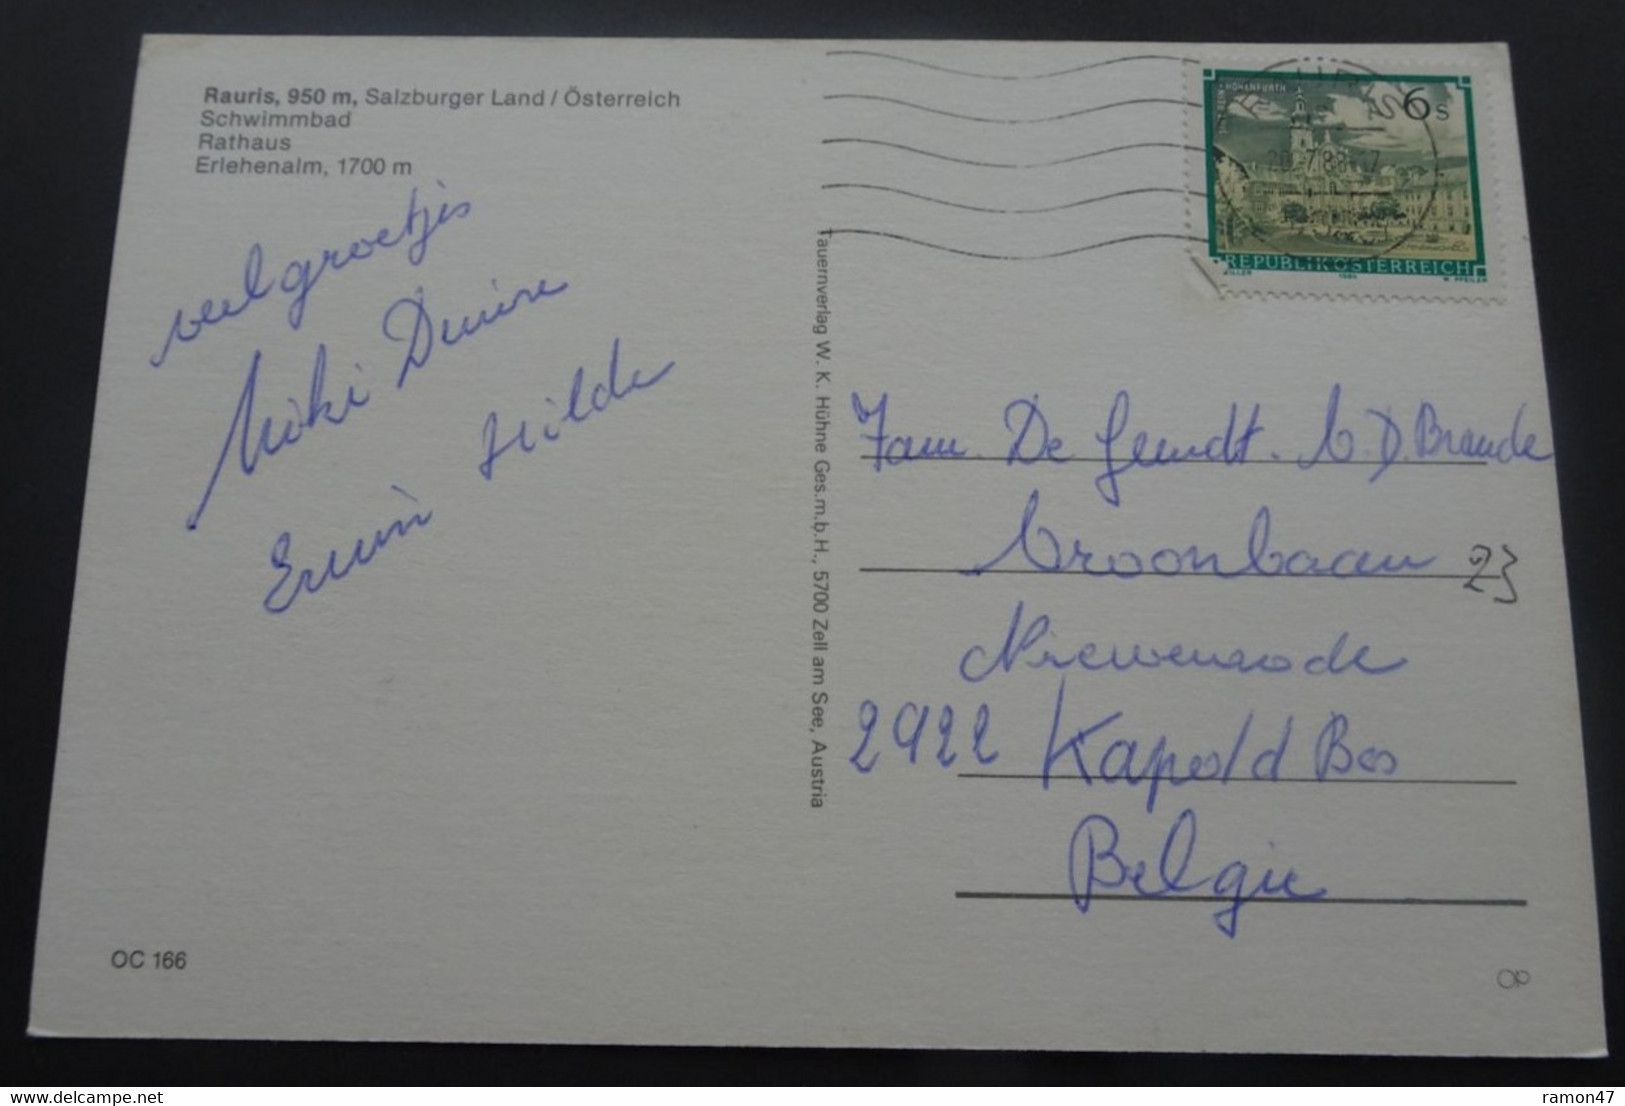 Rauris, 950 m, Salzburger Land / Österreich
Schwimmbad
Rathaus
Erlehenalm, 1700 m
veel groetjes
Miki Denise
Erwin Hilde
OC 166
Tauernverlag W. K. Hühne Ges.m.b.H., 5700 Zell am See, Austria
6 S
HOHENFURTH
20.-7.88-17
REPUBLIK ÖSTERREICH
ZILLER 1984 W. PFEILER
Fam. De Gendt. V.D. Brande
Croonbaan 23
Nieuwenrode
2922 Kapold Bos
België
OP
delcampe.net
ramon47